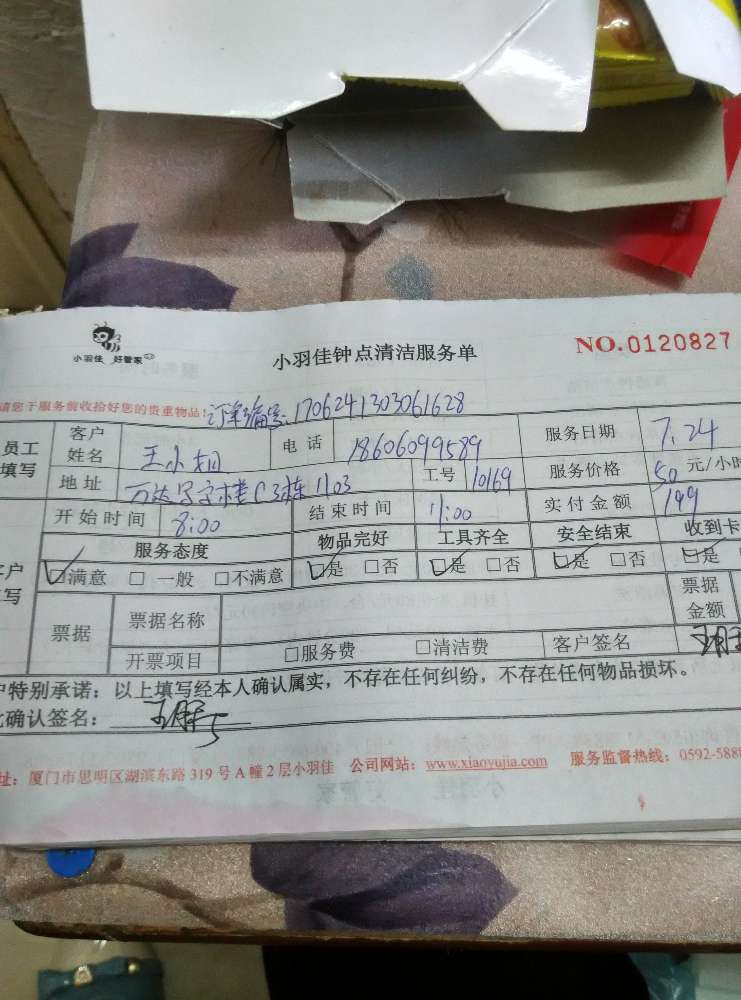 小羽佳 好管家
小羽佳钟点清洁服务单
NO.0120827
请您于服务前收拾好您的贵重物品！订单编号：1706241303061628
员工填写 客户姓名 王小姐 电话 18606099589 服务日期 7.24
地址 万达写字楼C3栋1103 工号 10169 服务价格 50 元/小
开始时间 8:00 结束时间 11:00 实付金额 149
服务态度 物品完好 工具齐全 安全结束 收到卡
☑满意 □一般 □不满意 ☑是 □否 ☑是 □否 ☑是 □否 ☑是
票据 票据名称 票据金额
开票项目 □服务费 □清洁费 客户签名
特别承诺：以上填写经本人确认属实，不存在任何纠纷，不存在任何物品损坏。
确认签名：
址：厦门市思明区湖滨东路319号A幢2层小羽佳 公司网站：www.xiaoyujia.com 服务监督热线：0592-588